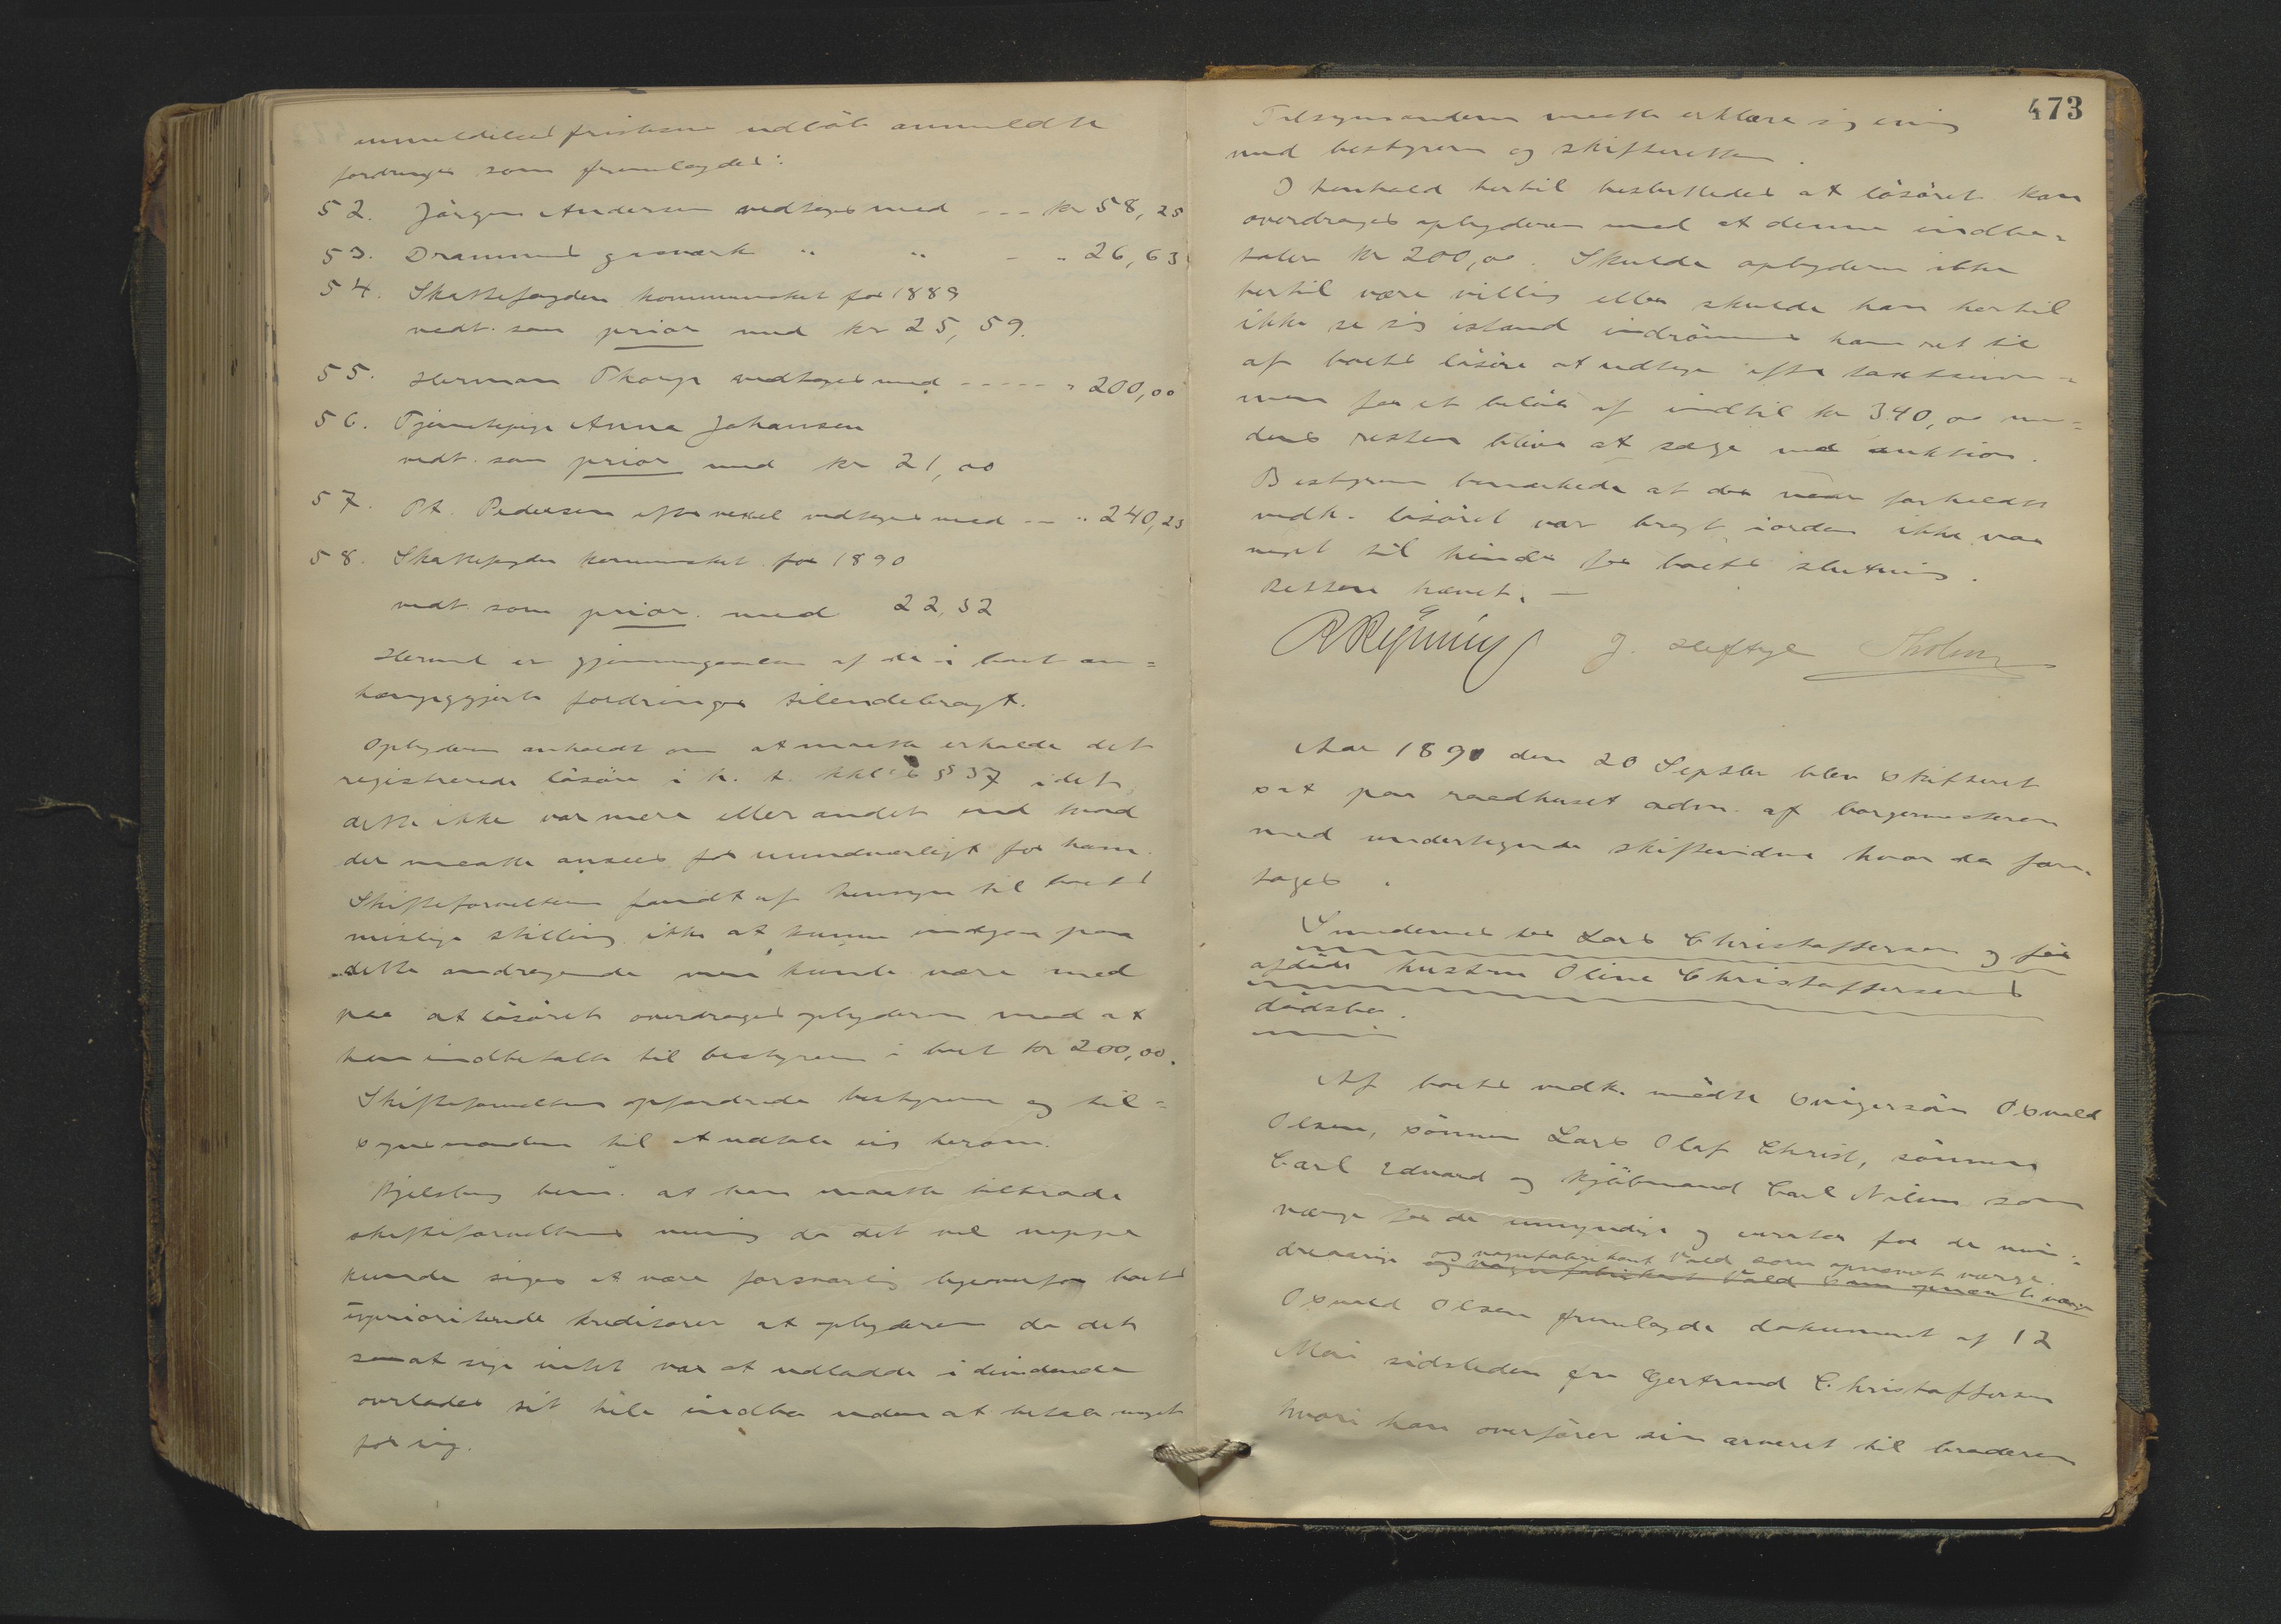 anmeldelsesfristens udløb anmeldte
fordringer som fremlagdes:
52. Jørgen Andersen vedtoges med - - - kr 58,25
53. Drammens gasværk " " - " 26,63
54. Skattefogden kommuneskat for 1889
vedt. som prior med kr 25,59.
55. Herman Thorp vedtoges med - - - - - " 200,00
56. Tjenestepige Anna Johansen
vedt. som prior med kr 21,00
57. Pt. Pedersen efter vexel vedtoges med - - " 240,23
58. Skattefogden kommuneskat for 1890
vedt. som prior. med 22,32
Hermed er gjennemgaaelsen af de i boet an=
hængiggjorte fordringer tilendebragt.
Opbyderen anholdt om at maatte erholde det
registrerede løsøre i h. t. § 37 idet
dette ikke var mere eller andet end hvad
der maatte ansees for uundværligt for ham.
Skifteforvalteren fandt af hensyn til boets
mislige stilling ikke at kunne indgaa paa
dette andragende men kunde være med
paa at løsøret overdroges opbyderen mod at
han indbetalte til bestyreren i boet kr 200,00.
Skifteforvalteren opfordrede bestyreren og til=
synsmanden til at udtale sig herom.
Kjelsberg bem. at han maatte tiltræde
skifteforvalterens mening da det vel neppe
kunde siges at være forsvarlig ligeoverfor boets
uprioriterede kreditorer at opbyderen da det
saa at sige intet var at udlodde i dividende
overlodes sit hele indbo uden at betale noget
for sig.
473
Tilsynsmanden maatte erklære sig enig
med bestyreren og skifteretten.
I henhold hertil besluttedes at løsøret kan
overdrages opbyderen mod at denne indbe=
taler kr 200,00. Skulde opbyderen ikke
hertil være villig eller skulde han hertil
ikke se sig istand indrømmes ham ret til
af boets løsøre at udtage efter taxtsum=
men for et beløb af indtil kr 340,00 me=
dens resten bliver at sælge ved auktion.
Bestyreren bemærkede at der naar forholdet
vedk. løsøret var bragt i orden ikke var
noget til hinder for boets slutning.
Retten hævet. —
J. Heftye Tholm
Aar 1890 den 20 Septbr blev skifteret
sat paa raadhuset adm. af borgermesteren
med undertegnede skiftevidne hvor da fore=
toges.
Smedemester Lars Christoffersen og før
afdøde hustru Oline Christoffersens
dødsbo.
Af boets vedk. mødte svigersøn Oswald
Olsen, sønnen Lars Olaf Christ, sønnen
Carl Edvard og kjøbmand Carl Nilsen som
værge for de umyndige og curator for de min=
og vognfabrikant Vold som opnævnt værge.
dreaarige og vognfabrikant Vold som opnævnt værge
Oswald Olsen fremlagde dokument af 12
Mai sidstleden fra Gertrand Christoffersen
hvori han overfører sin arveret til broderen